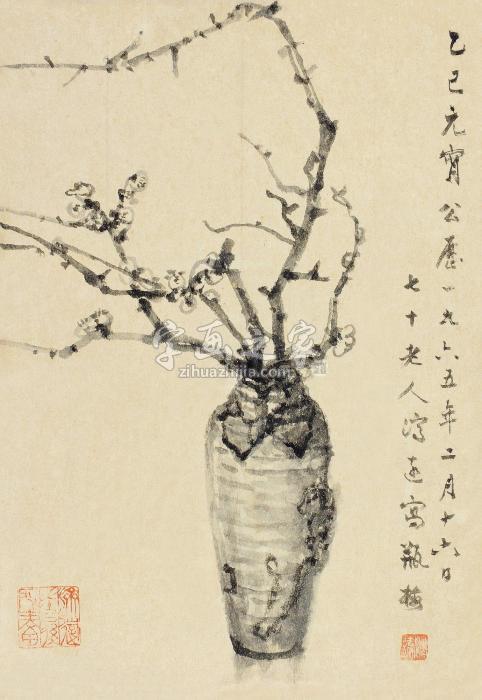 乙巳元宵公歷一九六五年二月十六日
七十老人寫瓶梅
字画之家
zihuazhijia.com